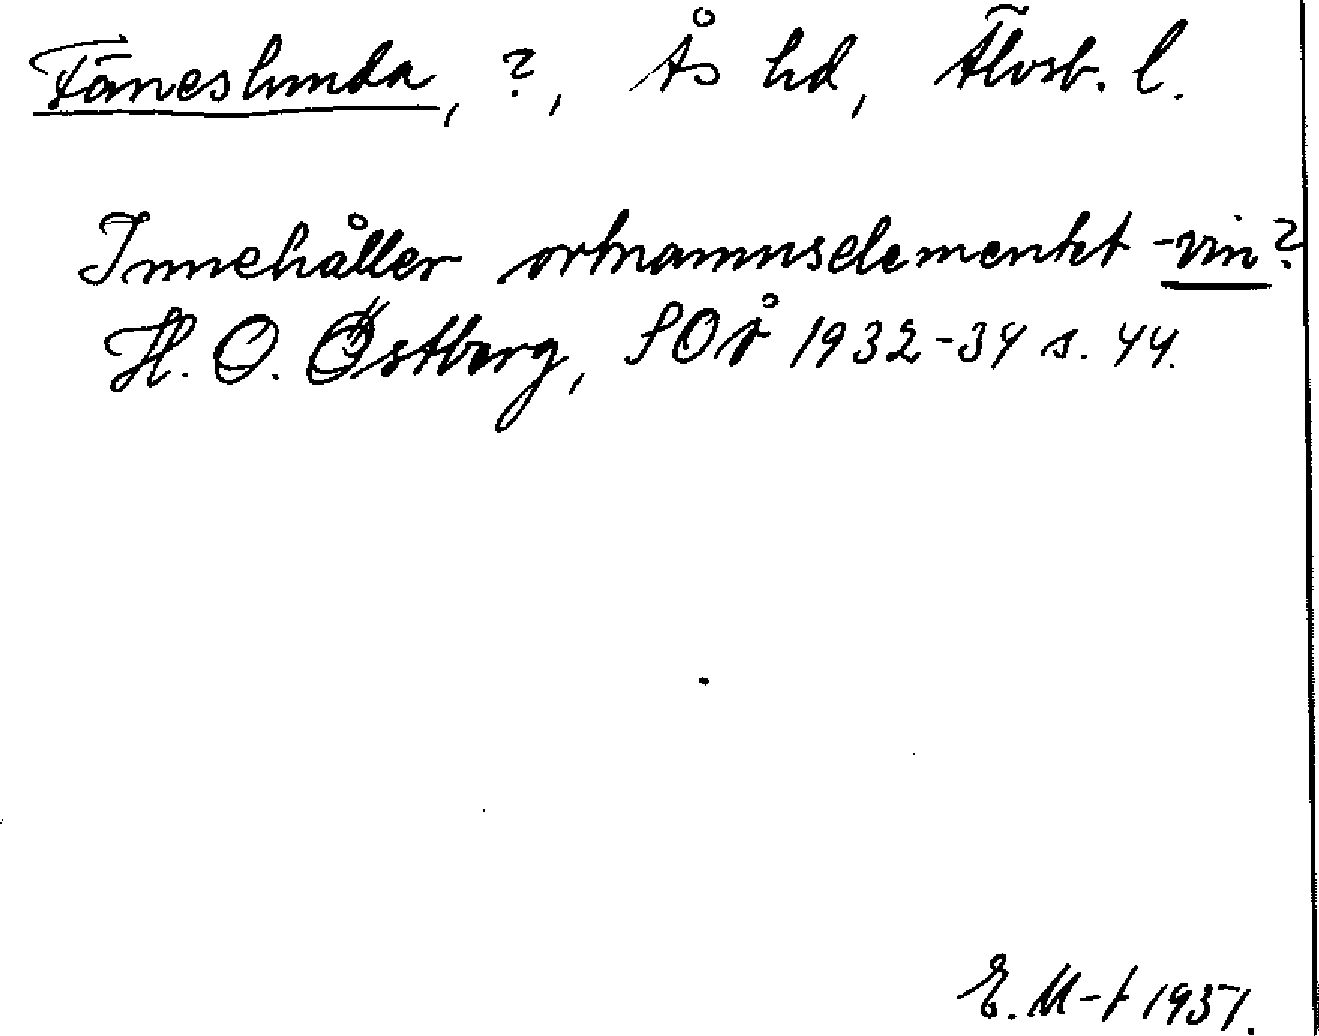 Fäneslunda, ?, Ås hd, Älvsb. l.
Innehåller ortnamnselementet -vin?
H. O. Östberg, SOÅ 1932-34 s. 44.
E. M-t 1951.